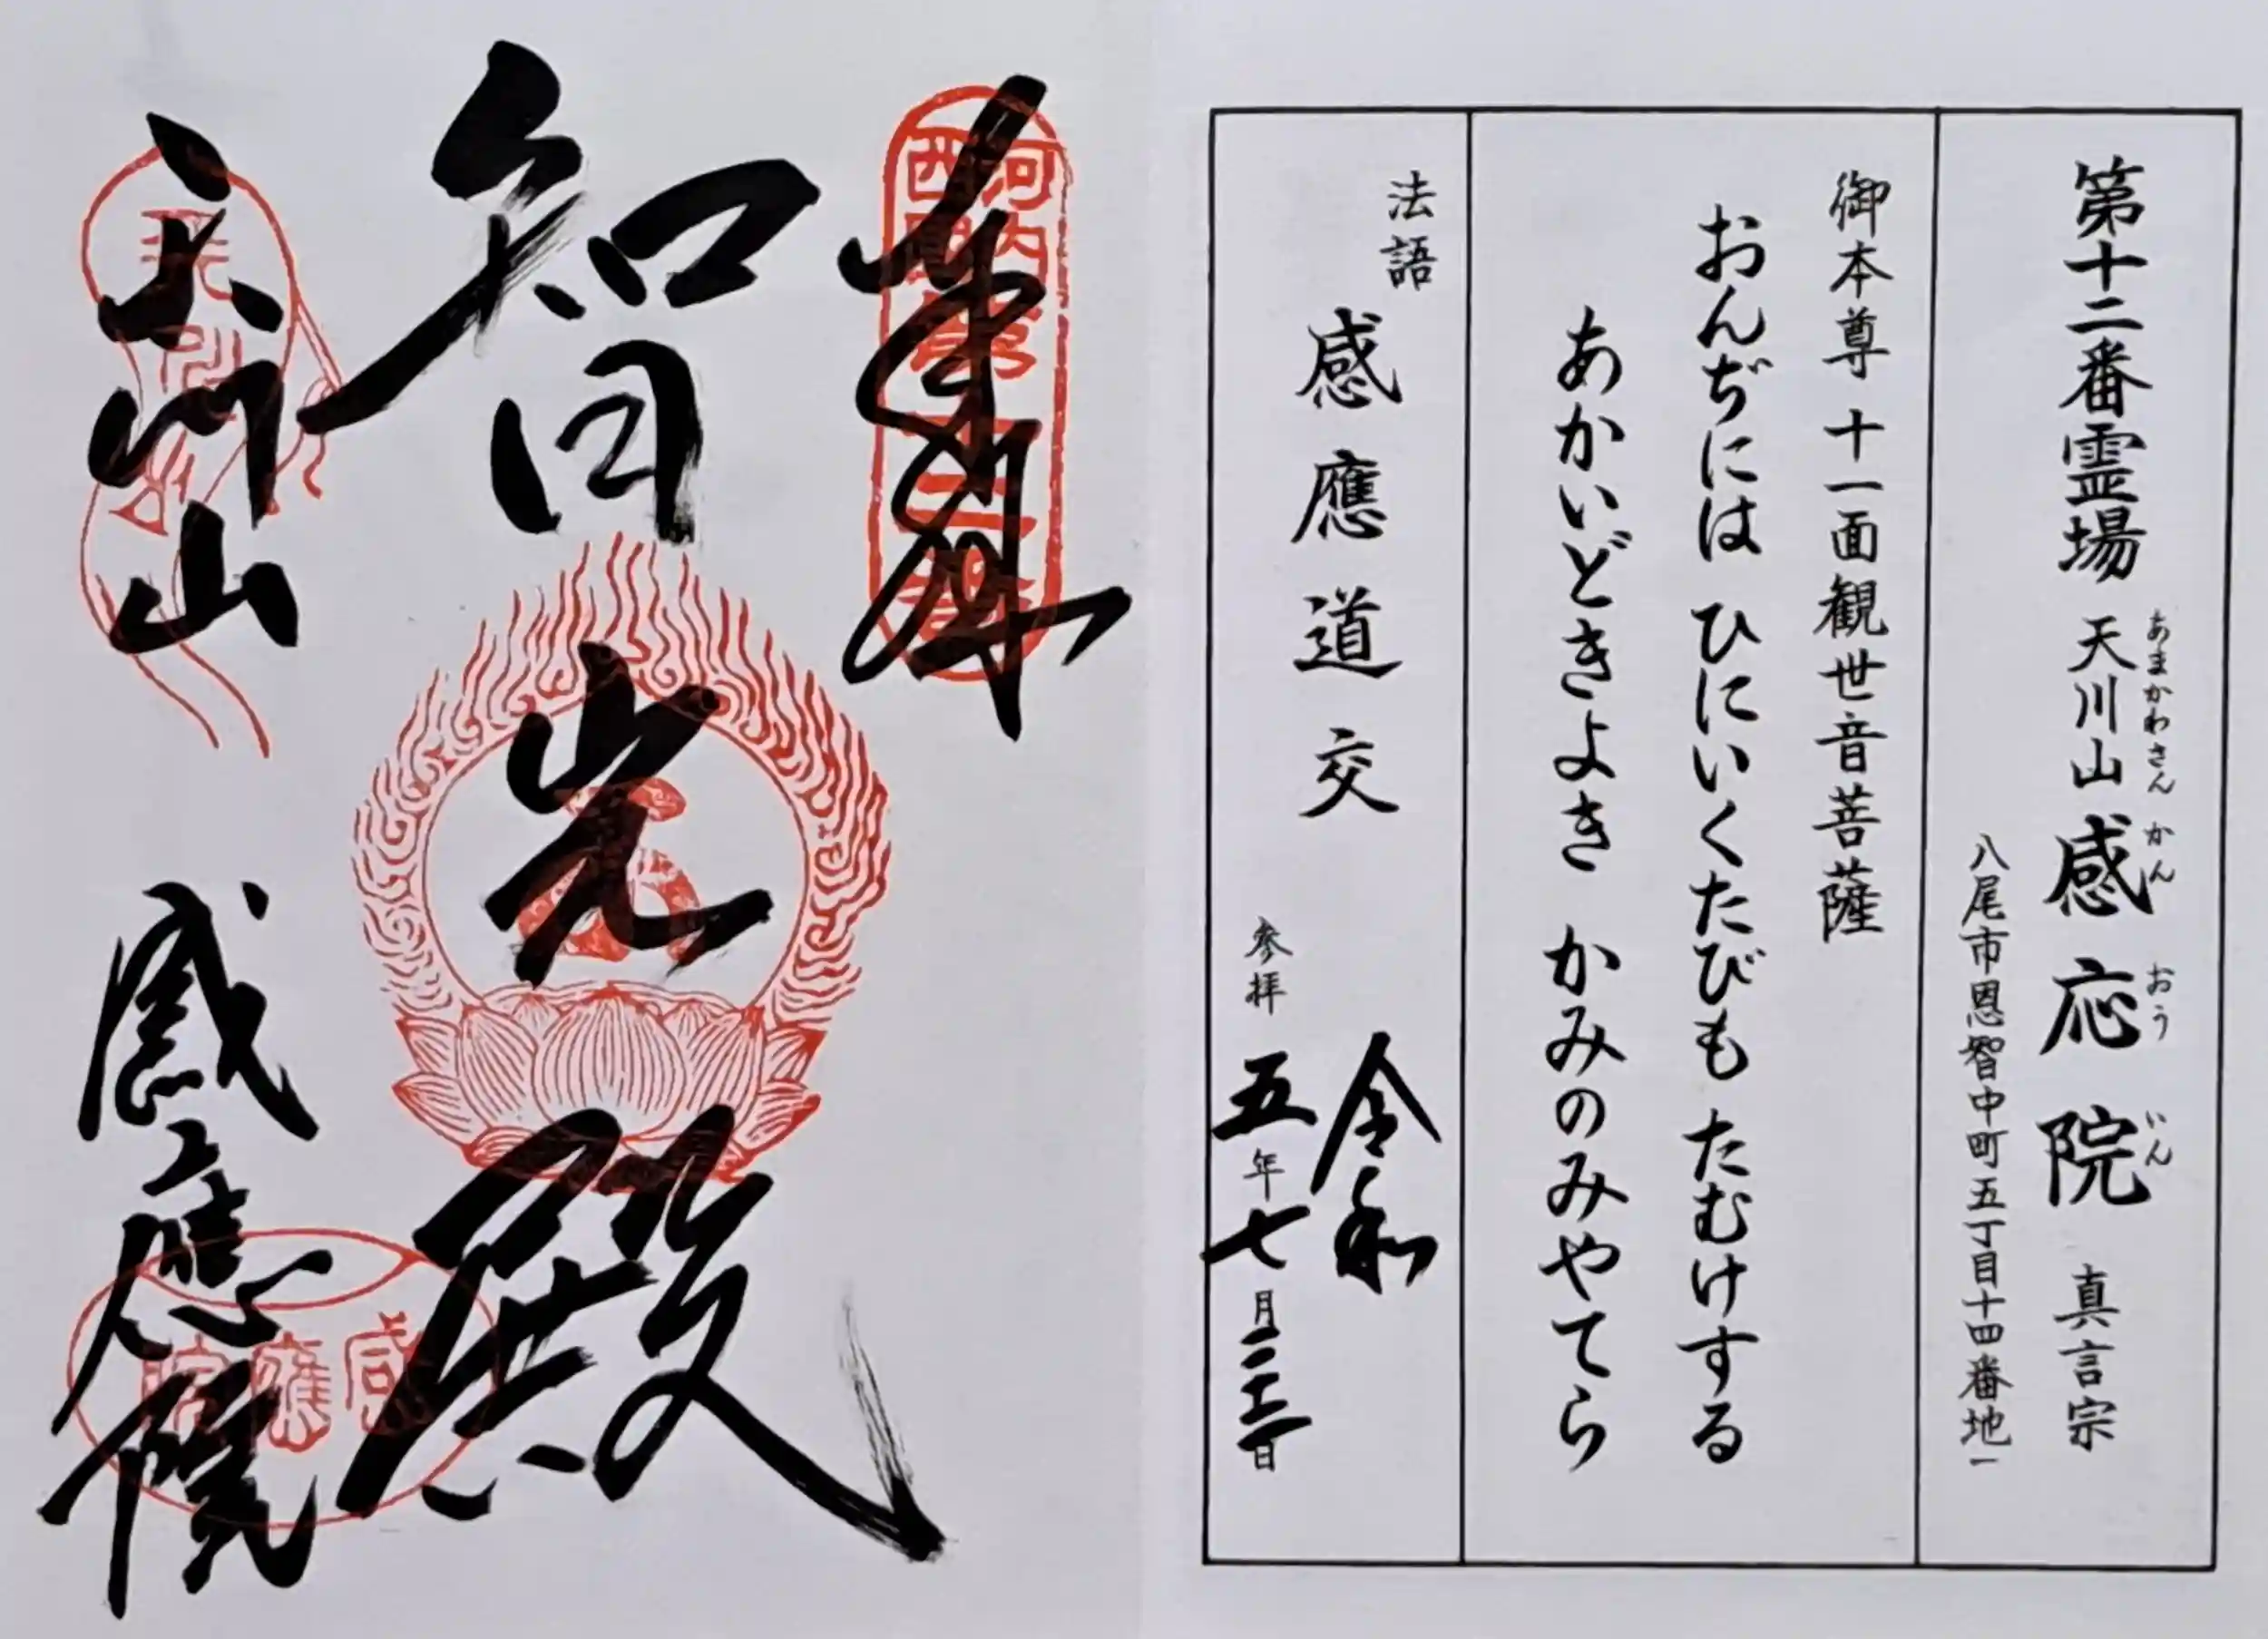 第十二番霊場 天川山 感応院 真言宗
あまかわさん かんおういん
八尾市恩智中町五丁目十四番地一
御本尊 十一面観世音菩薩
おんぢには ひにいくたびも たむけする
あかいどきよき かみのみやてら
法語
感應道交
令和
参拝 五年七月二十二日
奉拝
河内
西国
第十二番
智光殿
天川山
感應院
感應院